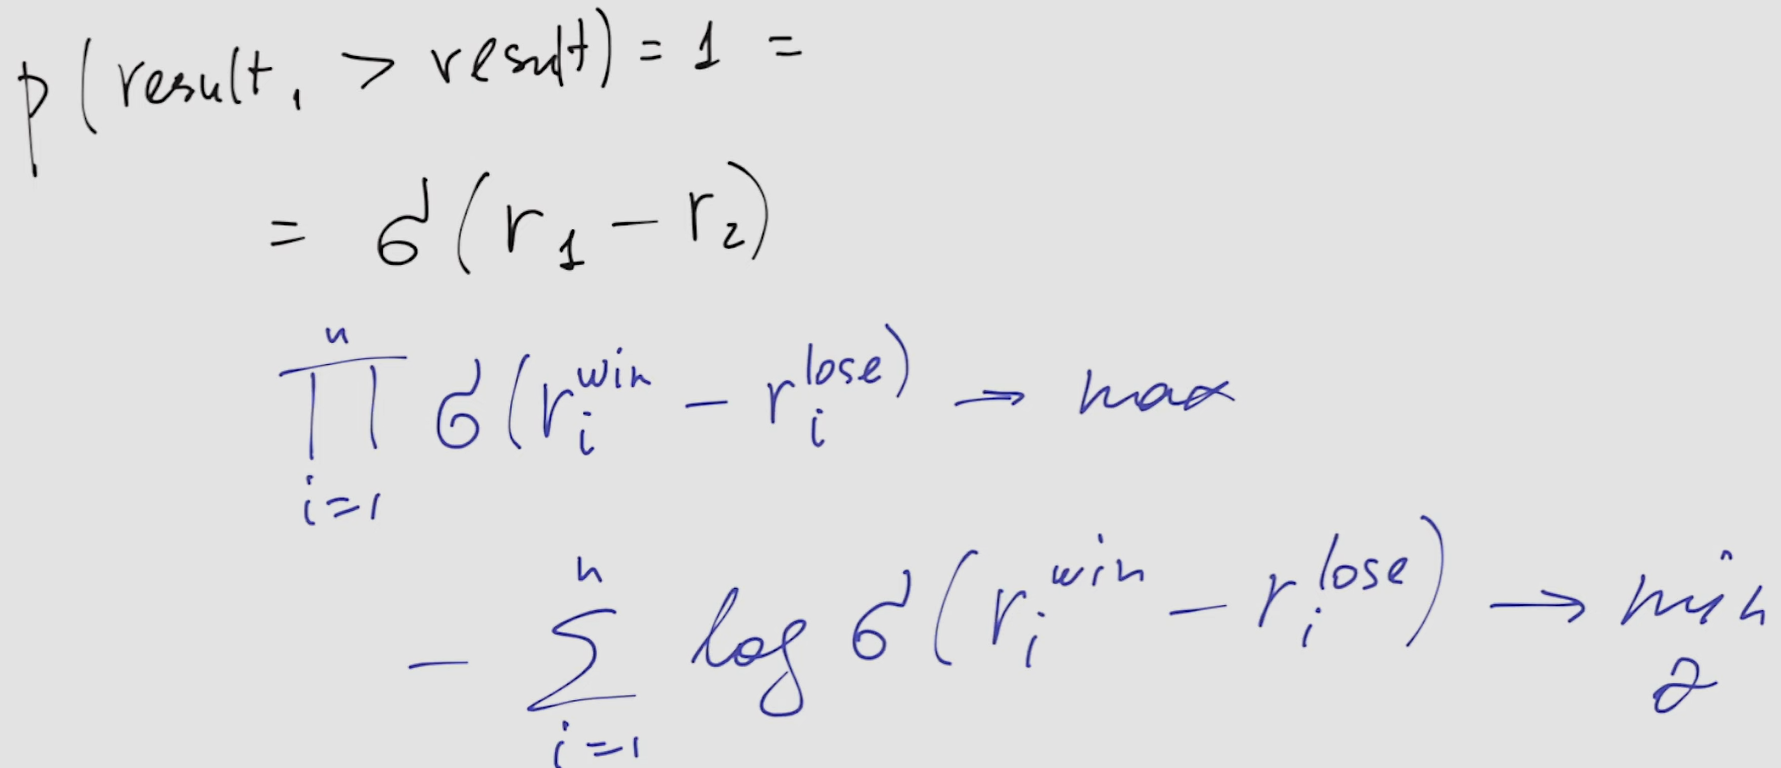 p(result₁ > result) = 1 =
= σ(r₁ − r₂)
∏ᵢ₌₁ⁿ σ(rᵢʷⁱⁿ − rᵢˡᵒˢᵉ) → max
− ∑ᵢ₌₁ⁿ log σ(rᵢʷⁱⁿ − rᵢˡᵒˢᵉ) → min